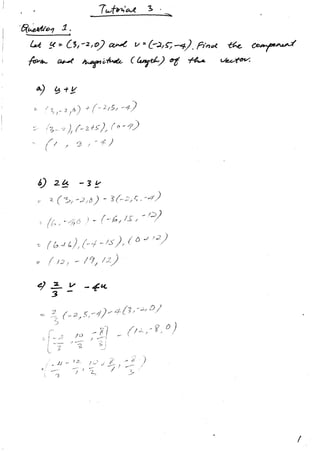 Tutorial 3.
Question 1:
Let u = (3,-2,0) and v = (-2,5,-4). Find the component
form and magnitude (length) of the vector.
a) u + v
= (3,-2,0) + (-2,5,-4)
= (3-2), (-2+5), (0-4)
= (1, 3, -4)
b) 2u - 3v
= 2(3,-2,0) - 3(-2,5,-4)
= (6,-4,0) - (-6,15,-12)
= (6+6), (-4-15), (0+12)
= (12, -19, 12)
c) 2/3 v - 4u
= 2/3 (-2,5,-4) - 4(3,-2,0)
- (12,-8,0)